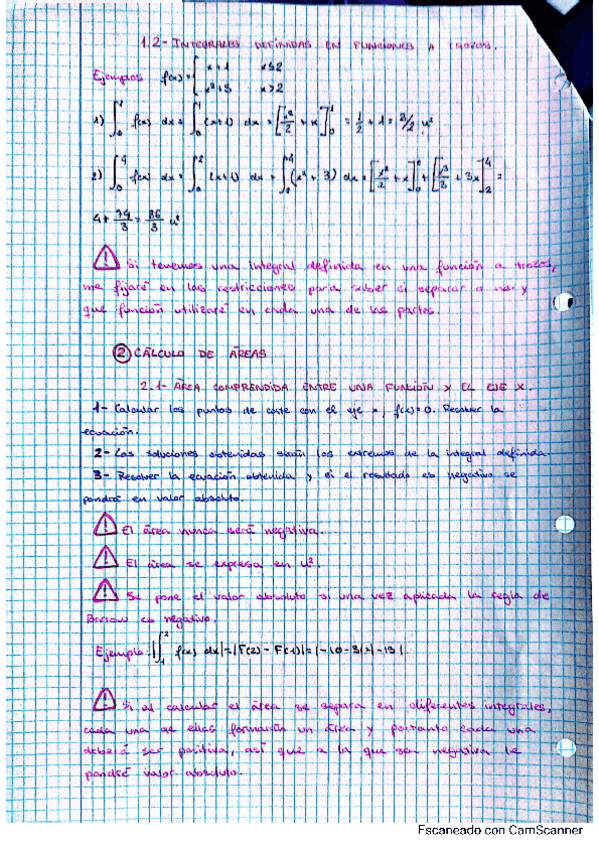 1.2- INTEGRALES DEFINIDAS EN FUNCIONES A TROZOS.
Ejemplos f(x)= { x+1 x≤2
x²+3 x>2
1) ∫₀¹ f(x) dx = ∫₀¹ (x+1) dx = [x²/2 + x]₀¹ = 1/2 + 1 = 3/2 u²
2) ∫₀⁴ f(x) dx = ∫₀² (x+1) dx + ∫₂⁴ (x² + 3) dx = [x²/2 + x]₀² + [x³/3 + 3x]₂⁴ =
4 + 74/3 = 86/3 u²
Si tenemos una integral definida en una función a trozos,
me fijaré en las restricciones para saber si separar o no y
que función utilizaré en cada una de las partes.
② CÁLCULO DE ÁREAS
2.1- ÁREA COMPRENDIDA ENTRE UNA FUNCIÓN Y EL EJE X.
1- Calcular los puntos de corte con el eje x, f(x)=0. Resolver la
ecuación.
2- Las soluciones obtenidas serán los extremos de la integral definida.
3- Resolver la ecuación obtenida y si el resultado es negativo se
pondrá en valor absoluto.
El área nunca será negativa.
El área se expresa en u².
Se pone el valor absoluto si una vez aplicada la regla de
Barrow es negativo.
Ejemplo: |∫₁² f(x) dx| = |F(2) - F(1)| = |-10-3| = |-13|
Si al calcular el área se separa en diferentes integrales,
cada una de ellas formarán un área y portanto cada una
deberá ser positiva, así que a la que sea negativa le
pondré valor absoluto.
Escaneado con CamScanner